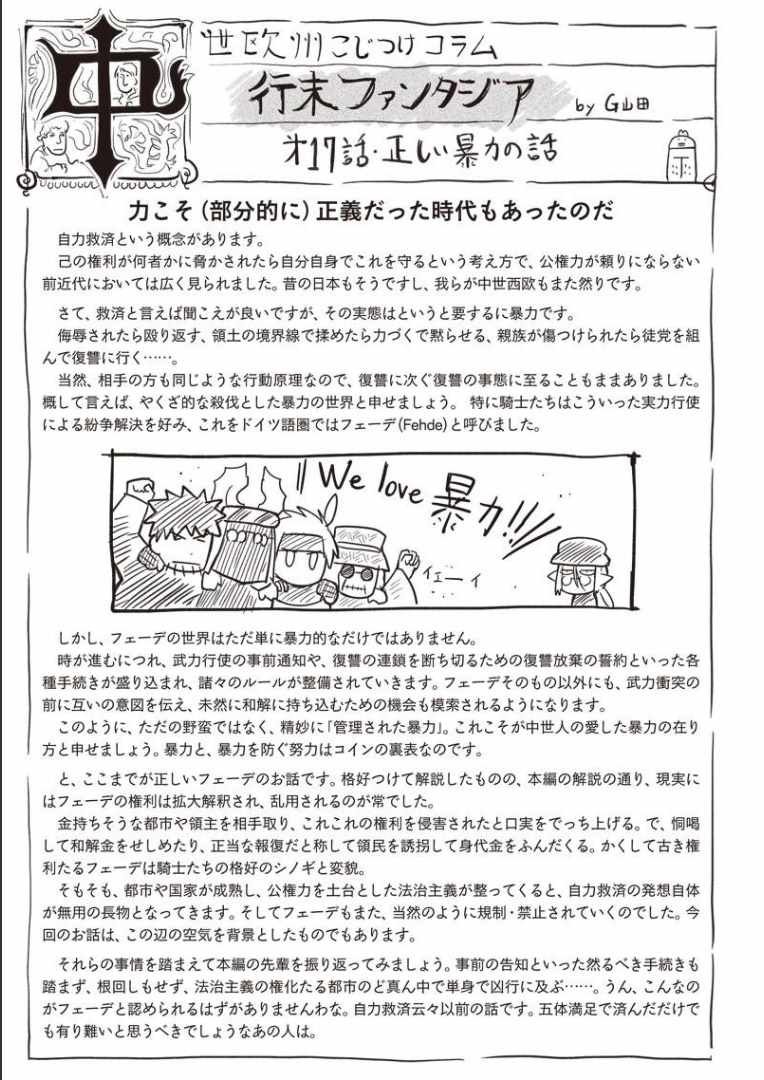 中世欧州こじつけコラム
行末ファンタジア by G山田
才17話・正しい暴力の話
力こそ（部分的に）正義だった時代もあったのだ
自力救済という概念があります。
己の権利が何者かに脅かされたら自分自身でこれを守るという考え方で、公権力が頼りにならない
前近代においては広く見られました。昔の日本もそうですし、我らが中世西欧もまた然りです。
さて、救済と言えば聞こえが良いですが、その実態はというと要するに暴力です。
侮辱されたら殴り返す、領土の境界線で揉めたら力づくで黙らせる、親族が傷つけられたら徒党を組
んで復讐に行く……。
当然、相手の方も同じような行動原理なので、復讐に次ぐ復讐の事態に至ることもままありました。
概して言えば、やくざ的な殺伐とした暴力の世界と申せましょう。 特に騎士たちはこういった実力行使
による紛争解決を好み、これをドイツ語圏ではフェーデ（Fehde）と呼びました。
We love 暴力!!!
イェーイ
しかし、フェーデの世界はただ単に暴力的なだけではありません。
時が進むにつれ、武力行使の事前通知や、復讐の連鎖を断ち切るための復讐放棄の誓約といった各
種手続きが盛り込まれ、諸々のルールが整備されていきます。フェーデそのもの以外にも、武力衝突の
前に互いの意図を伝え、未然に和解に持ち込むための機会も模索されるようになります。
このように、ただの野蛮ではなく、精妙に「管理された暴力」。これこそが中世人の愛した暴力の在り
方と申せましょう。暴力と、暴力を防ぐ努力はコインの裏表なのです。
と、ここまでが正しいフェーデのお話です。格好つけて解説したものの、本編の解説の通り、現実に
はフェーデの権利は拡大解釈され、乱用されるのが常でした。
金持ちそうな都市や領主を相手取り、これこれの権利を侵害されたと口実をでっち上げる。で、恫喝
して和解金をせしめたり、正当な報復だと称して領民を誘拐して身代金をふんだくる。かくして古き権
利たるフェーデは騎士たちの格好のシノギと変貌。
そもそも、都市や国家が成熟し、公権力を土台とした法治主義が整ってくると、自力救済の発想自体
が無用の長物となってきます。そしてフェーデもまた、当然のように規制・禁止されていくのでした。今
回のお話は、この辺の空気を背景としたものでもあります。
それらの事情を踏まえて本編の先輩を振り返ってみましょう。事前の告知といった然るべき手続きも
踏まず、根回しもせず、法治主義の権化たる都市のど真ん中で単身で凶行に及ぶ……。うん、こんなの
がフェーデと認められるはずがありませんわな。自力救済云々以前の話です。五体満足で済んだだけで
も有り難いと思うべきでしょうなあの人は。